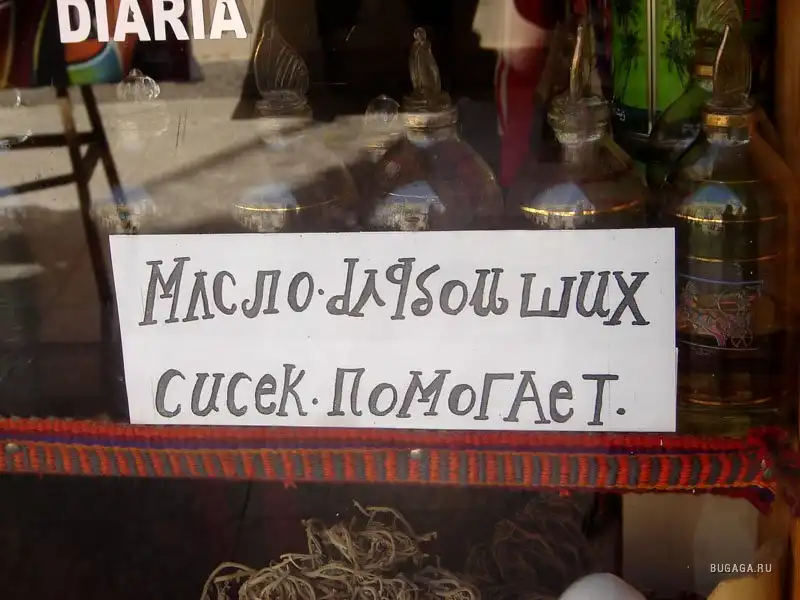 DIARIA
Масло·для больших
сисек·помогает.
BUGAGA.RU